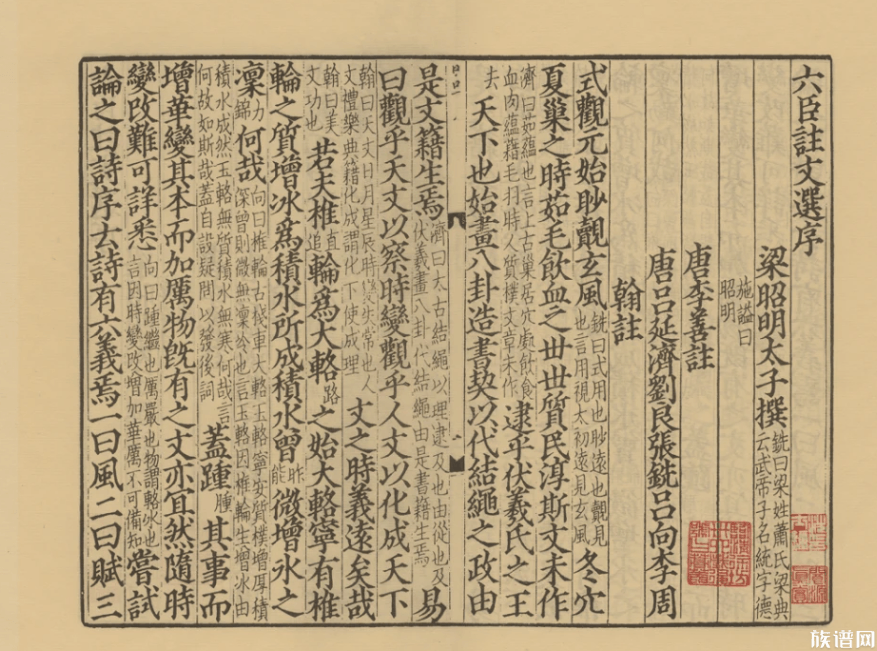 六臣註文選序
梁昭明太子撰銑曰梁姓蕭氏梁典云武帝子名統字德
施謚曰昭明
唐李善註
唐呂延濟劉良張銑呂向李周
翰註
式觀元始眇覿玄風銑曰式用也眇遠也覿見也言用視太初遠見玄風冬穴
夏巢之時茹毛飲血之世世質民淳斯文未作
濟曰茹蘊也言上古巢居穴處飲食血肉蘊藉毛羽時人質樸文章未作逮乎伏羲氏之王
去天下也始畫八卦造書契以代結繩之政由
是文籍生焉濟曰太古結繩以理逮及也由從也及伏羲畫八卦代結繩由是書籍生焉易
曰觀乎天文以察時變觀乎人文以化成天下
翰曰天文日月星辰時變失常也人文禮樂典籍化成謂化下使成理文之時義遠矣哉
翰曰美文功也若夫椎直追輪爲大輅路之始大輅寧有椎
輪之質增冰爲積水所成積水曾昨能微增冰之
凜力錦何哉向曰椎輪古棧車大輅玉輅寧安質樸增厚積深曾則微無凜冷也言玉輅因椎輪生增冰由
積水成然玉輅無質積水無寒何哉言何故如斯哉蓋自設疑問以發後詞蓋踵腫其事而
增華變其本而加厲物旣有之文亦宜然隨時
變改難可詳悉向曰踵繼也厲嚴也物謂輅冰也言因時變改增加華厲不可備知嘗試
論之曰詩序云詩有六義焉一曰風二曰賦三
族谱网